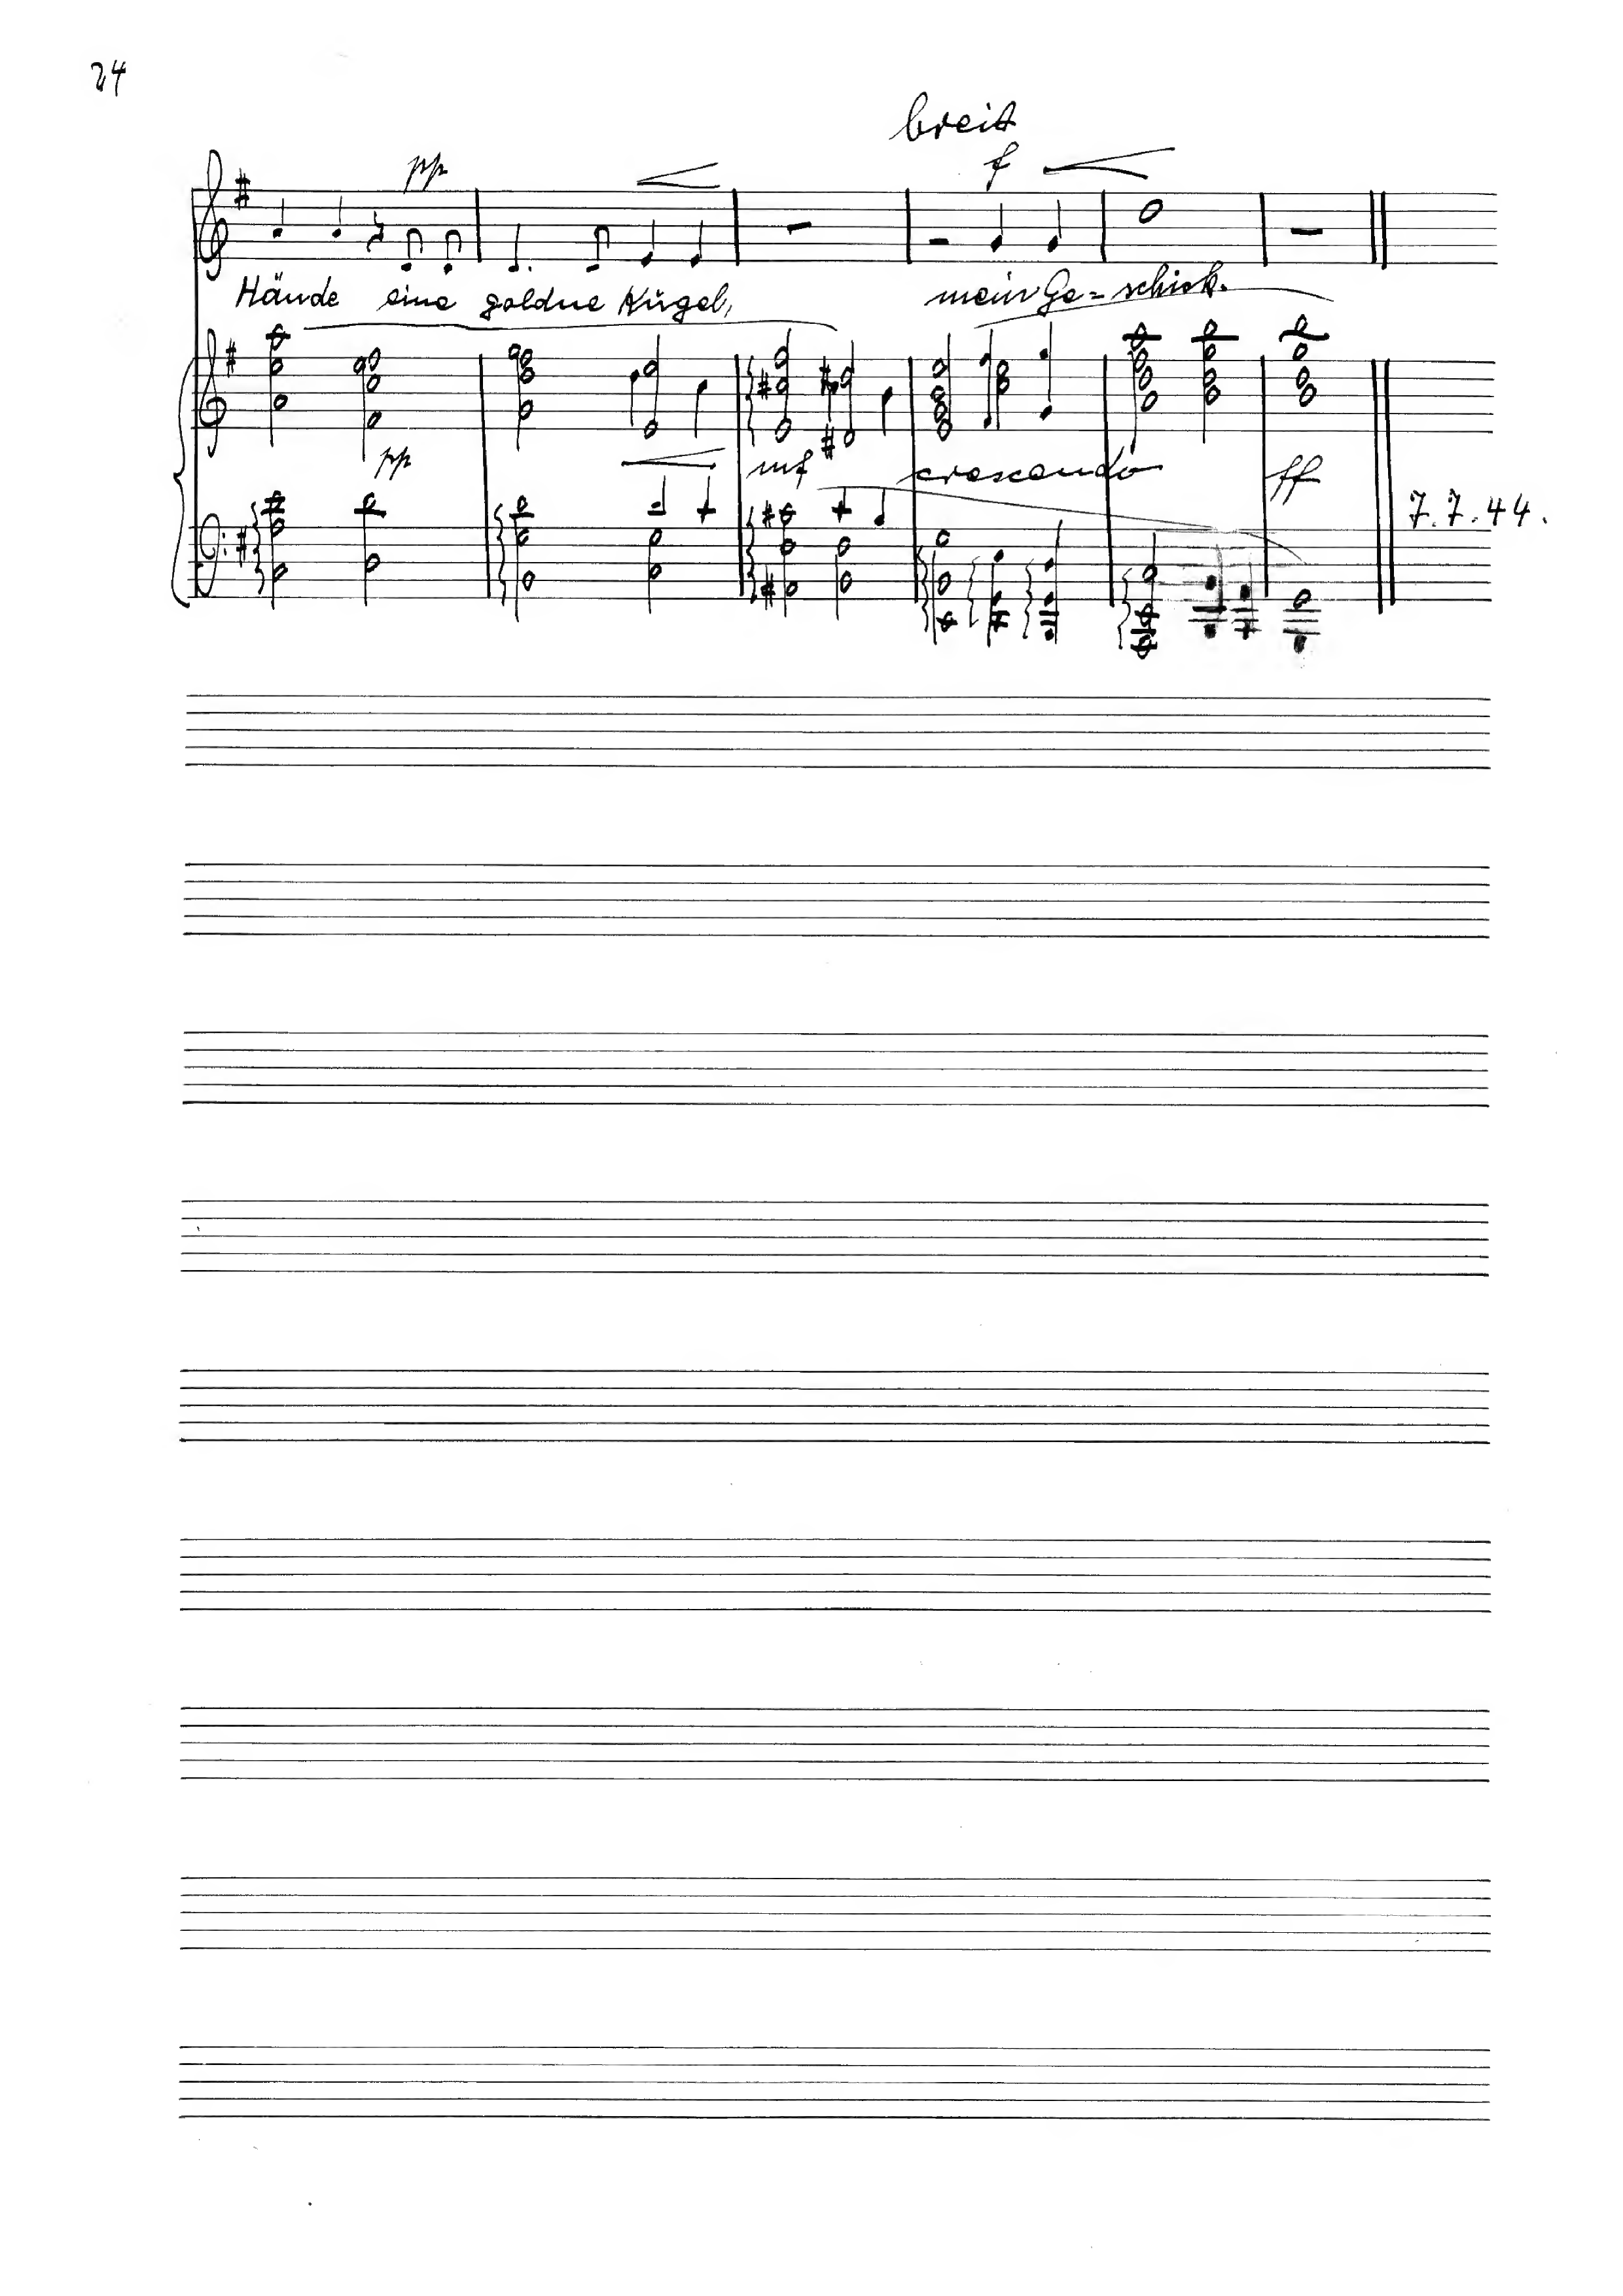 24
breit
pp f
Hände eine goldne Kugel, mein Ge=schick.
pp mf crescendo ff
7.7.44.